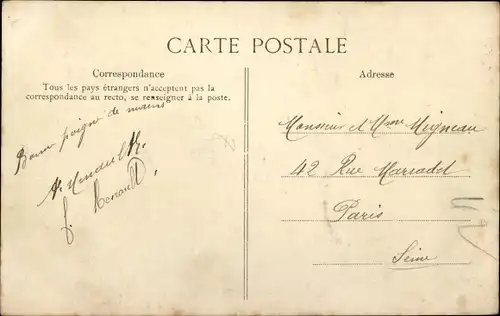 CARTE POSTALE
Correspondance
Tous les pays étrangers n'acceptent pas la
correspondance au recto, se renseigner à la poste.
Bonne poigne de mains
f. Renault
Adresse
Monsieur et Mme Migneau
42 Rue Marcadet
Paris
Seine